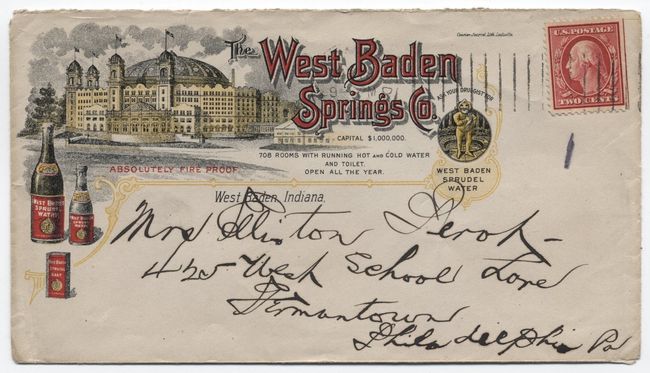 Courier-Journal Lith. Louisville
The West Baden
Springs Co.
U.S. POSTAGE
TWO CENTS
CAPITAL $1,000,000.
708 ROOMS WITH RUNNING HOT AND COLD WATER
AND TOILET.
OPEN ALL THE YEAR.
ABSOLUTELY FIRE PROOF
ASK YOUR DRUGGIST FOR
WEST BADEN
SPRUDEL
WATER
West Baden, Indiana,
WEST BADEN
SPRUDEL
WATER
WEST BADEN
SPRUDEL
WATER
WEST BADEN
SPRUDEL
SALT
Mrs Elliston Perot
425 West School Lane
Germantown
Philadelphia Pa